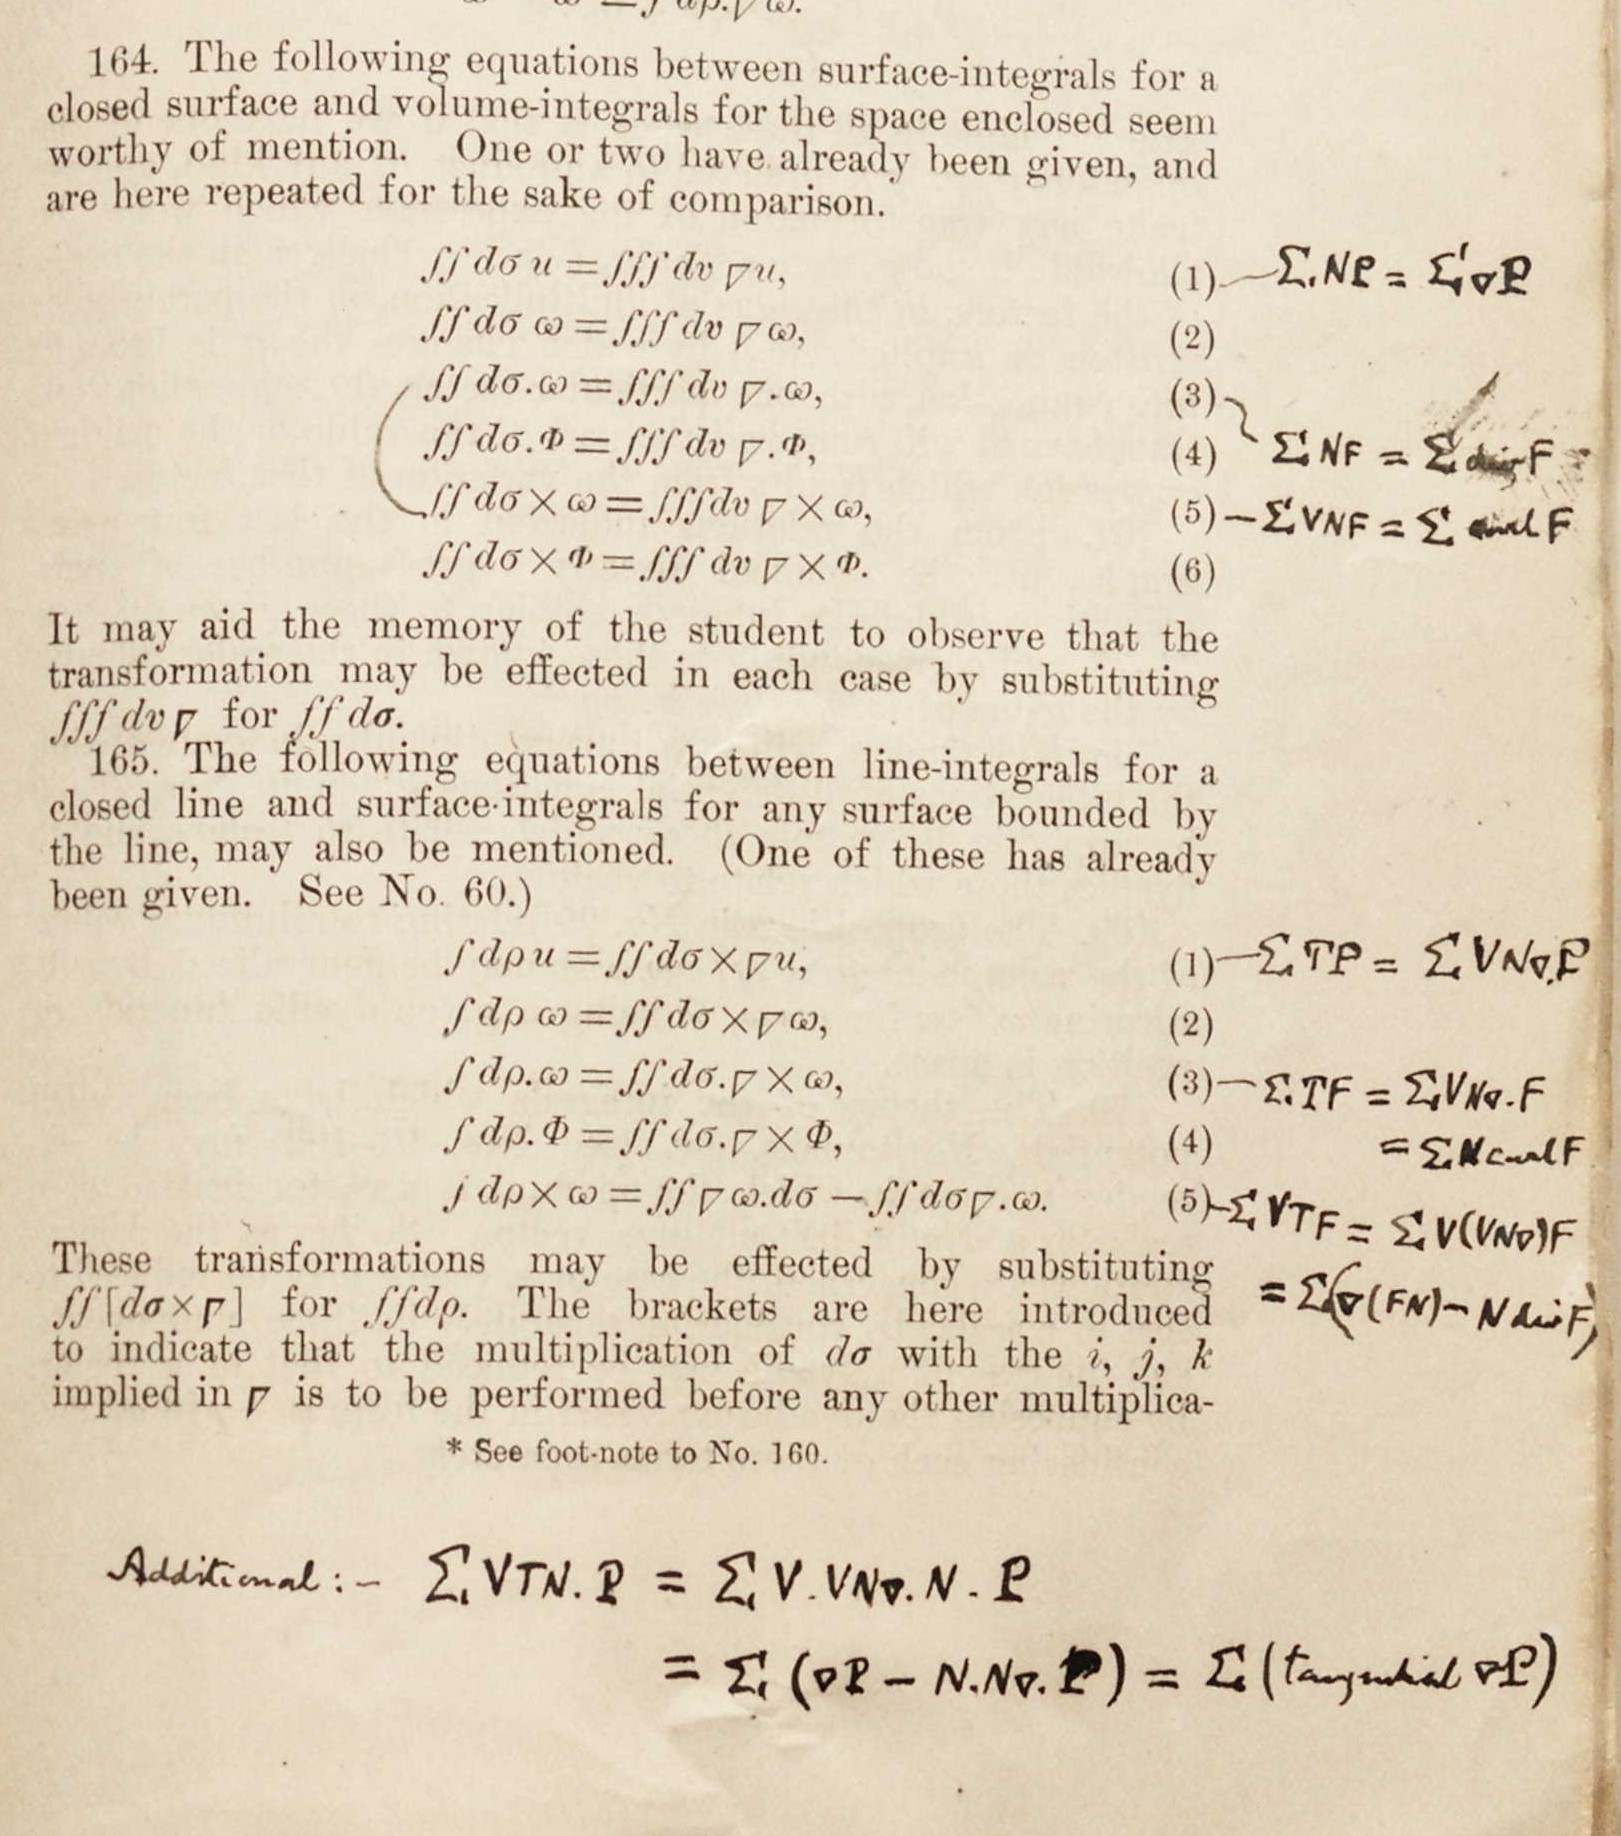 164. The following equations between surface-integrals for a
closed surface and volume-integrals for the space enclosed seem
worthy of mention. One or two have already been given, and
are here repeated for the sake of comparison.
∫∫dσ u = ∫∫∫dv ∇u, (1) — Σ NP = Σ ∇P
∫∫dσ ω = ∫∫∫dv ∇ω, (2)
∫∫dσ.ω = ∫∫∫dv ∇.ω, (3)
∫∫dσ.Φ = ∫∫∫dv ∇.Φ, (4) Σ NF = Σ div F
∫∫dσ×ω = ∫∫∫dv ∇×ω, (5) — Σ VNF = Σ curl F
∫∫dσ×Φ = ∫∫∫dv ∇×Φ. (6)
It may aid the memory of the student to observe that the
transformation may be effected in each case by substituting
∫∫∫dv∇ for ∫∫dσ.
165. The following equations between line-integrals for a
closed line and surface-integrals for any surface bounded by
the line, may also be mentioned. (One of these has already
been given. See No. 60.)
∫dρ u = ∫∫dσ×∇u, (1) — Σ TP = Σ VN∇.P
∫dρ ω = ∫∫dσ×∇ω, (2)
∫dρ.ω = ∫∫dσ.∇×ω, (3) — Σ TF = Σ VN∇.F
∫dρ.Φ = ∫∫dσ.∇×Φ, (4) = Σ N curl F
∫dρ×ω = ∫∫∇ω.dσ − ∫∫dσ∇.ω. (5) — Σ VTF = Σ V(VN∇)F
These transformations may be effected by substituting
= Σ(∇(FN) − N div F)
∫∫[dσ×∇] for ∫∫dρ. The brackets are here introduced
to indicate that the multiplication of dσ with the i, j, k
implied in ∇ is to be performed before any other multiplica-
* See foot-note to No. 160.
Additional :- Σ VTN. P = Σ V.VN∇.N. P
= Σ (∇P − N.N∇.P) = Σ (tangential ∇P)